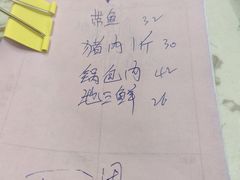 带鱼 32
猪肉1斤 30
锅包肉 42
地三鲜 26